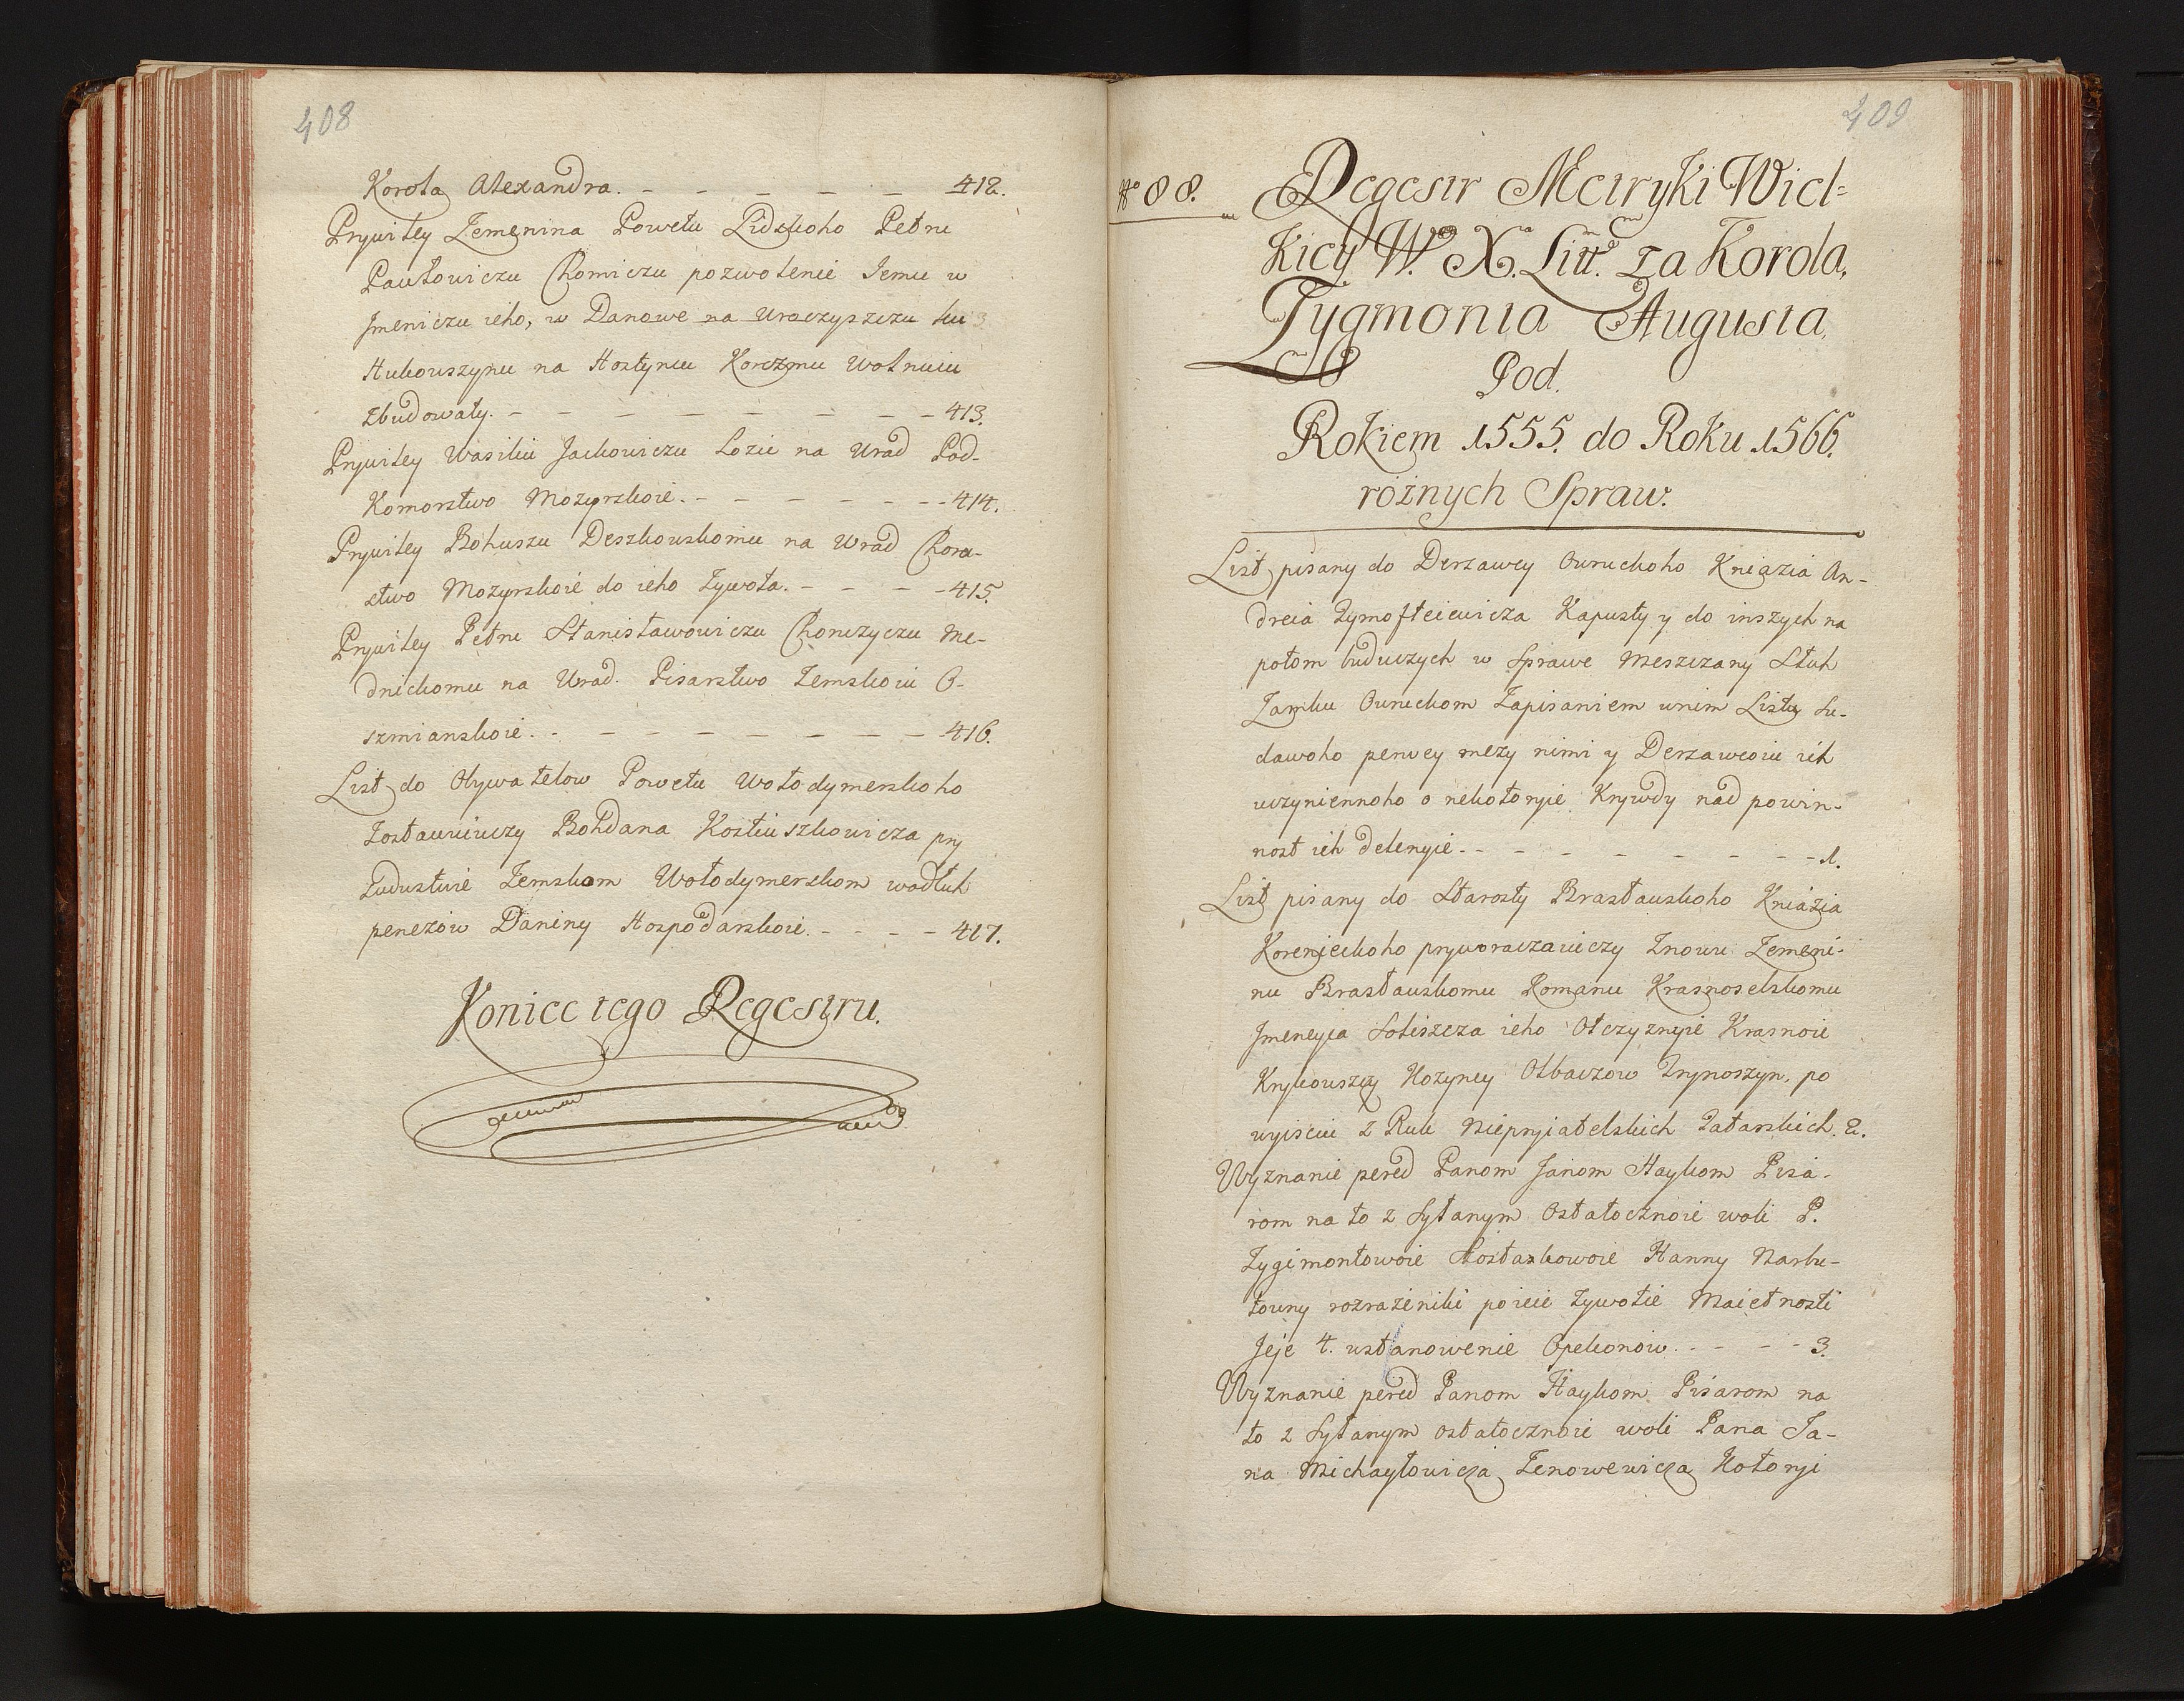 408
Korola Alexandra. - - - - - - 412.
Prywiley Zemenina Powetu Lidskoho Petru
Pawłowiczu Chomiczu pozwolenie Jemu w
Jmeniczu ieho, w Danowe na Uroczyszczu
Hukowszynu na Hostyncu Korczmu Wolnuiu
zbudowaty. - - - - - - - - 413.
Prywiley Wasiliu Jackowiczu Lozie na Urad Pod-
Komorstwo Mozyrskoie. - - - - - - - 414.
Prywiley Bohuszu Deszkouskomu na Urad Choru-
stwo Mozyrskoie do ieho Zywota. - - - - 415.
Prywiley Petru Stanisławowiczu Chonczyczu Me-
dnickomu na Urad. Pisarstwo Zemskoiu O-
szmianskoie. - - - - - - - - 416.
List do Obywatelow Powetu Wołodymerskoho
Zostawuiuczy Bohdana Kostiuszkowicza pry
Sudustwie Zemskom Wołodymerskom wodłuh
penezow Daniny Hospodarskoie. - - - - 417.
Koniec tego Regestru.
409
No 88. Regestr Metryki Wiel=
kiey W. X. Litt. za Korola,
Zygmonta Augusta,
Pod.
Rokiem 1555. do Roku 1566.
różnych Spraw.
List pisany do Derzawcy Owruckoho Kniązia An-
dreia Tymofteiewicza Kapusty y do inszych na
potom buduczych w Sprawe Meszczany Słuh
Zamku Owruckom Zapisaniem wnim Listu Su-
dawoho perwey mezy nimi y Derzawcoiu ich
uczyniennoho o nekotoryie Krywdy nad powin-
nost ich delenyie. - - - - - - - - 1.
List pisany do Starosty Brasławskoho Kniazia
Korenieckoho prywoaczaiuczy Znowu Zemeni-
nu Brasławskomu Romanu Krasnoselskomu
Jmeneyca Seliszcza ieho Otczyznyie Krasnoie
Krykowszczy Nozyncy Olbaczow Trynoszyn. po
wyisciu z Ruk Nieprjiatelskich Tatarskich. 2.
Wyznanie pered Panom Janom Haykom Pisa-
rom na to z Syłanym Ostatocznoie woli P.
Zygimontowoie Hostaskowoie Hanny Narbu-
towny rozrażeniki po ieie Zywotie Maietnosti
Jeje 4. ustanowenie Opekonow. - - - - 3.
Wyznanie pered Panom Haykom Pisarom na
to z Syłanym ostatocznoie woli Pana Ja-
na Michayłowicza Zenowewicza Kotoryi